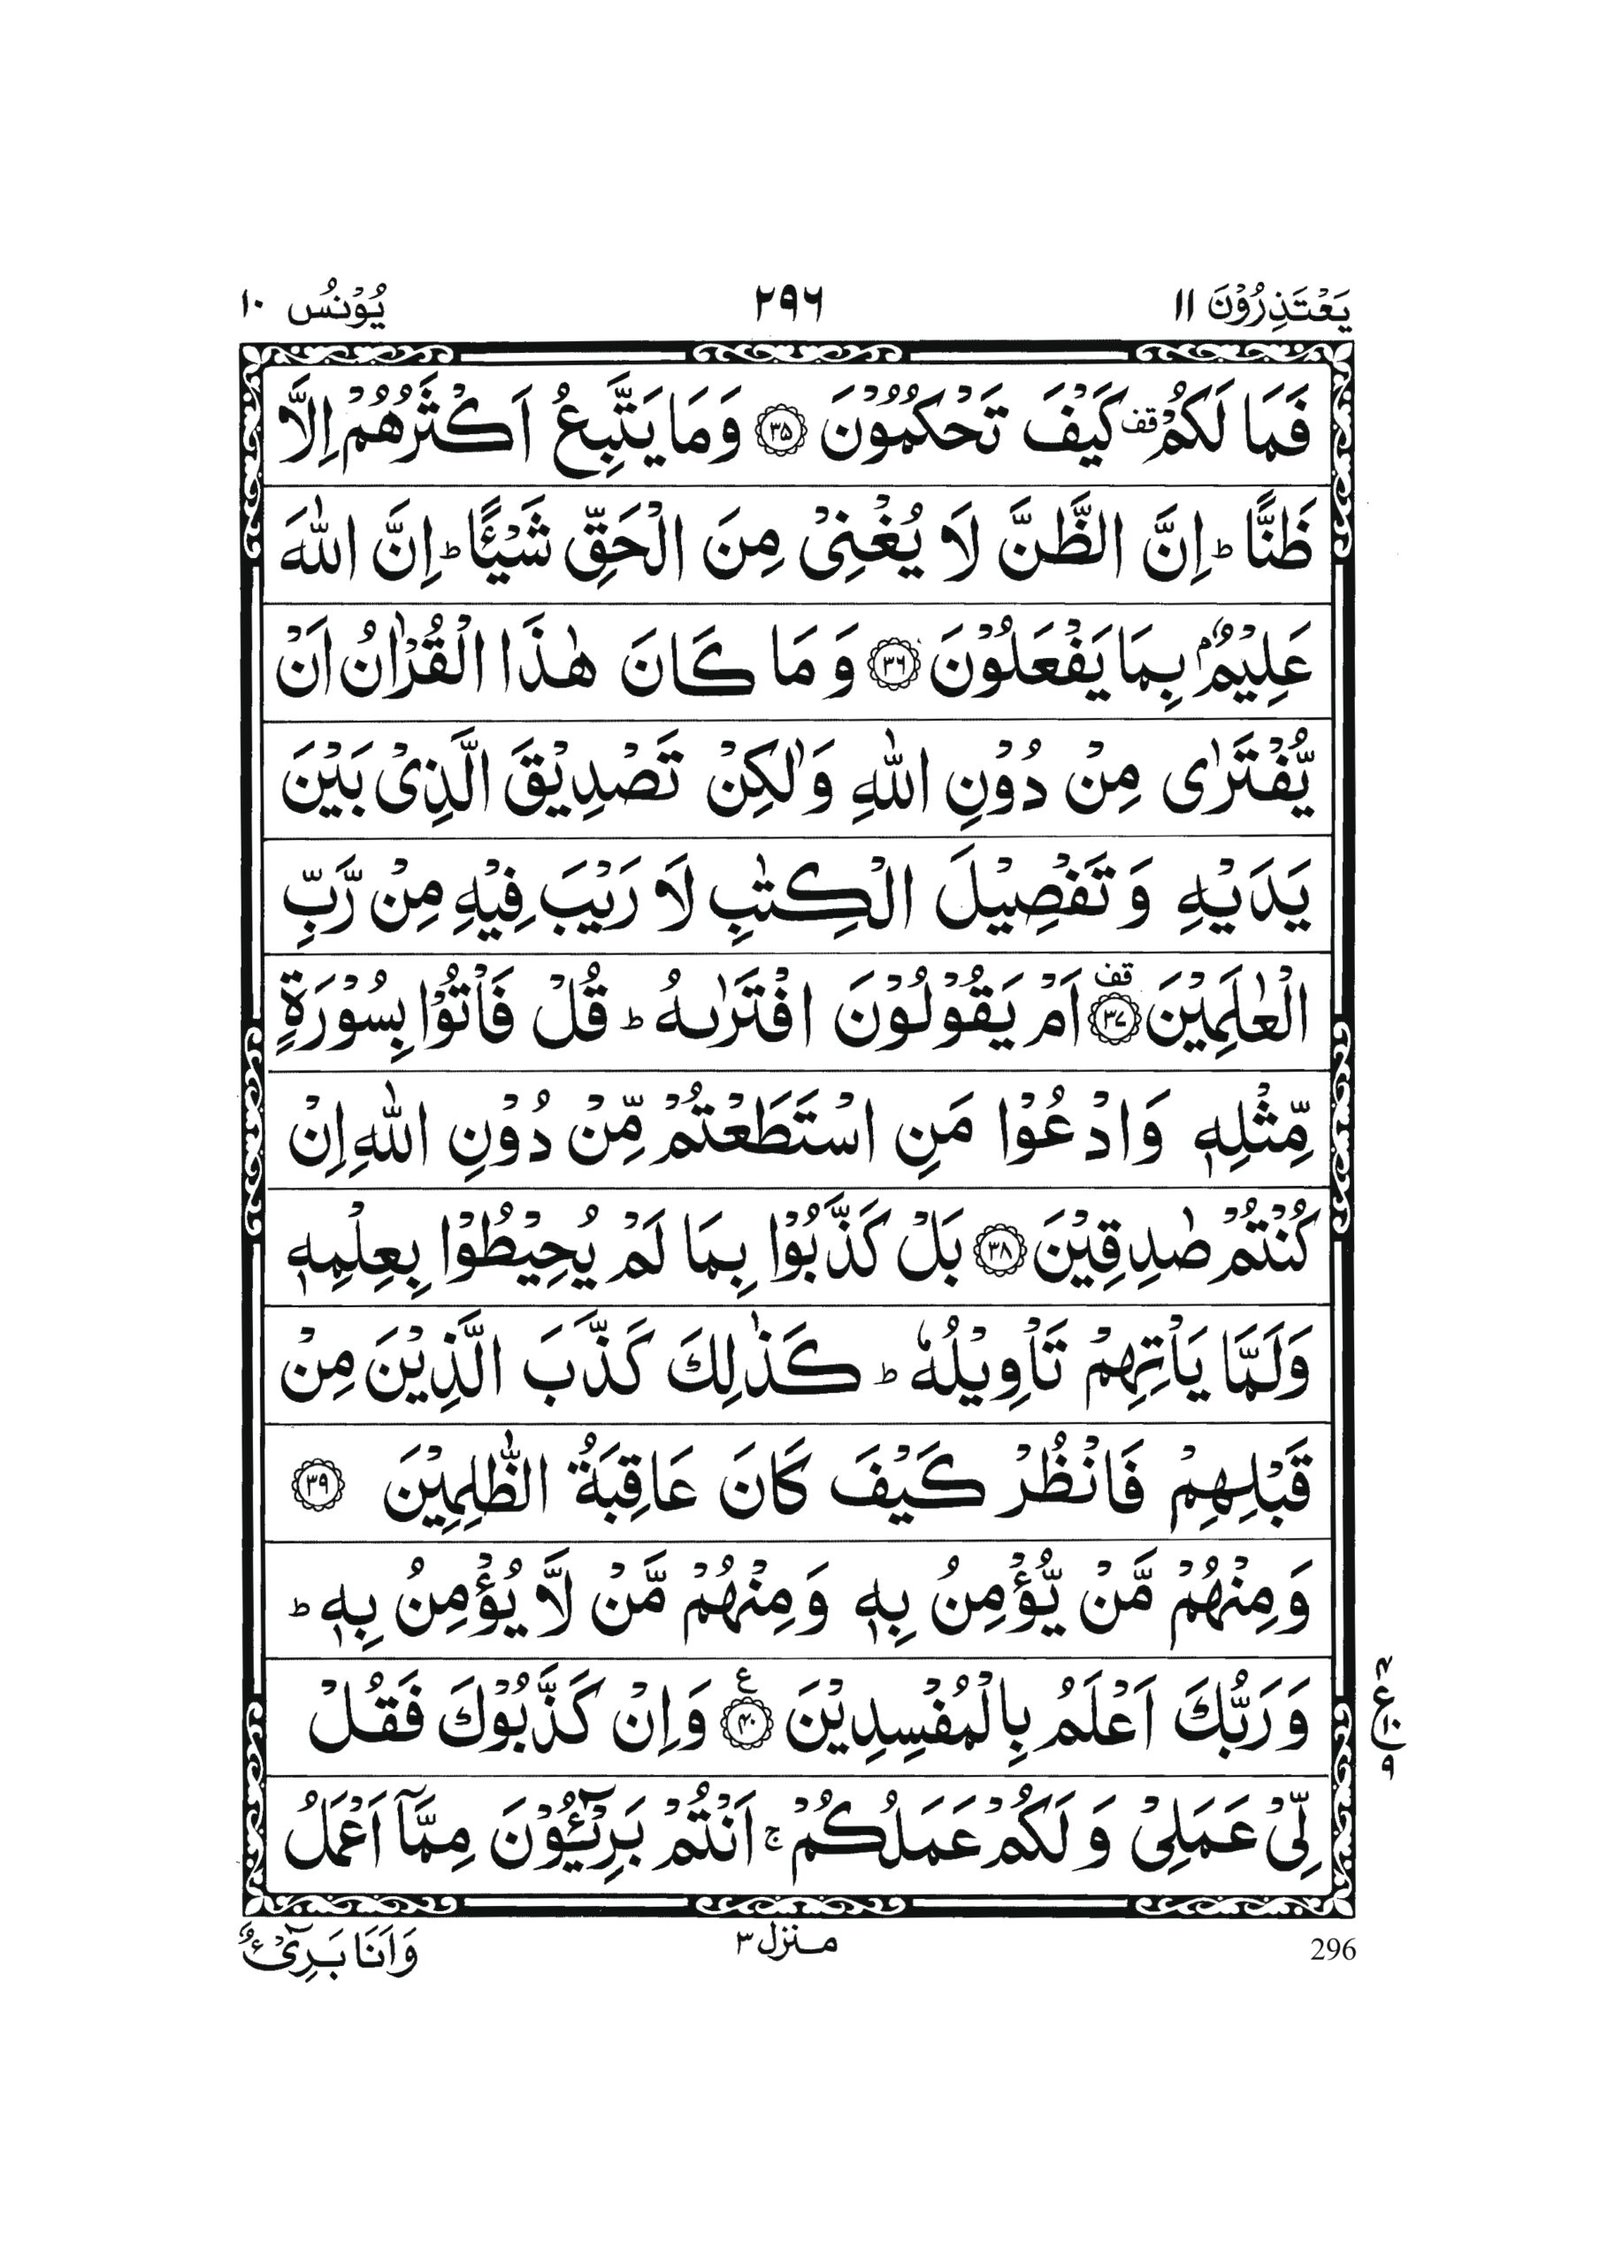 يَعْتَذِرُوْنَ ١١ ٢٩٦ يُوْنُس ١٠
فَمَا لَكُمْ قف كَيْفَ تَحْكُمُوْنَ ﴿٣٥﴾ وَمَا يَتَّبِعُ اَكْثَرُهُمْ اِلَّا
ظَنًّا ؕ اِنَّ الظَّنَّ لَا يُغْنِيْ مِنَ الْحَقِّ شَيْـًٔا ؕ اِنَّ اللّٰهَ
عَلِيْمٌۢ بِمَا يَفْعَلُوْنَ ﴿٣٦﴾ وَمَا كَانَ هٰذَا الْقُرْاٰنُ اَنْ
يُّفْتَرٰى مِنْ دُوْنِ اللّٰهِ وَلٰكِنْ تَصْدِيْقَ الَّذِيْ بَيْنَ
يَدَيْهِ وَتَفْصِيْلَ الْكِتٰبِ لَا رَيْبَ فِيْهِ مِنْ رَّبِّ
الْعٰلَمِيْنَ ﴿٣٧﴾ قف اَمْ يَقُوْلُوْنَ افْتَرٰىهُ ؕ قُلْ فَاْتُوْا بِسُوْرَةٍ
مِّثْلِهٖ وَادْعُوْا مَنِ اسْتَطَعْتُمْ مِّنْ دُوْنِ اللّٰهِ اِنْ
كُنْتُمْ صٰدِقِيْنَ ﴿٣٨﴾ بَلْ كَذَّبُوْا بِمَا لَمْ يُحِيْطُوْا بِعِلْمِهٖ
وَلَمَّا يَاْتِهِمْ تَاْوِيْلُهٗ ؕ كَذٰلِكَ كَذَّبَ الَّذِيْنَ مِنْ
قَبْلِهِمْ فَانْظُرْ كَيْفَ كَانَ عَاقِبَةُ الظّٰلِمِيْنَ ﴿٣٩﴾
وَمِنْهُمْ مَّنْ يُّؤْمِنُ بِهٖ وَمِنْهُمْ مَّنْ لَّا يُؤْمِنُ بِهٖ ؕ
وَرَبُّكَ اَعْلَمُ بِالْمُفْسِدِيْنَ ﴿٤٠﴾ ع وَاِنْ كَذَّبُوْكَ فَقُلْ
لِّيْ عَمَلِيْ وَلَكُمْ عَمَلُكُمْ ۚ اَنْتُمْ بَرِيْٓـُٔوْنَ مِمَّآ اَعْمَلُ
٤ ع ١٠ ٩
296 منزل ٣ وَاَنَا بَرِيْٓءٌ